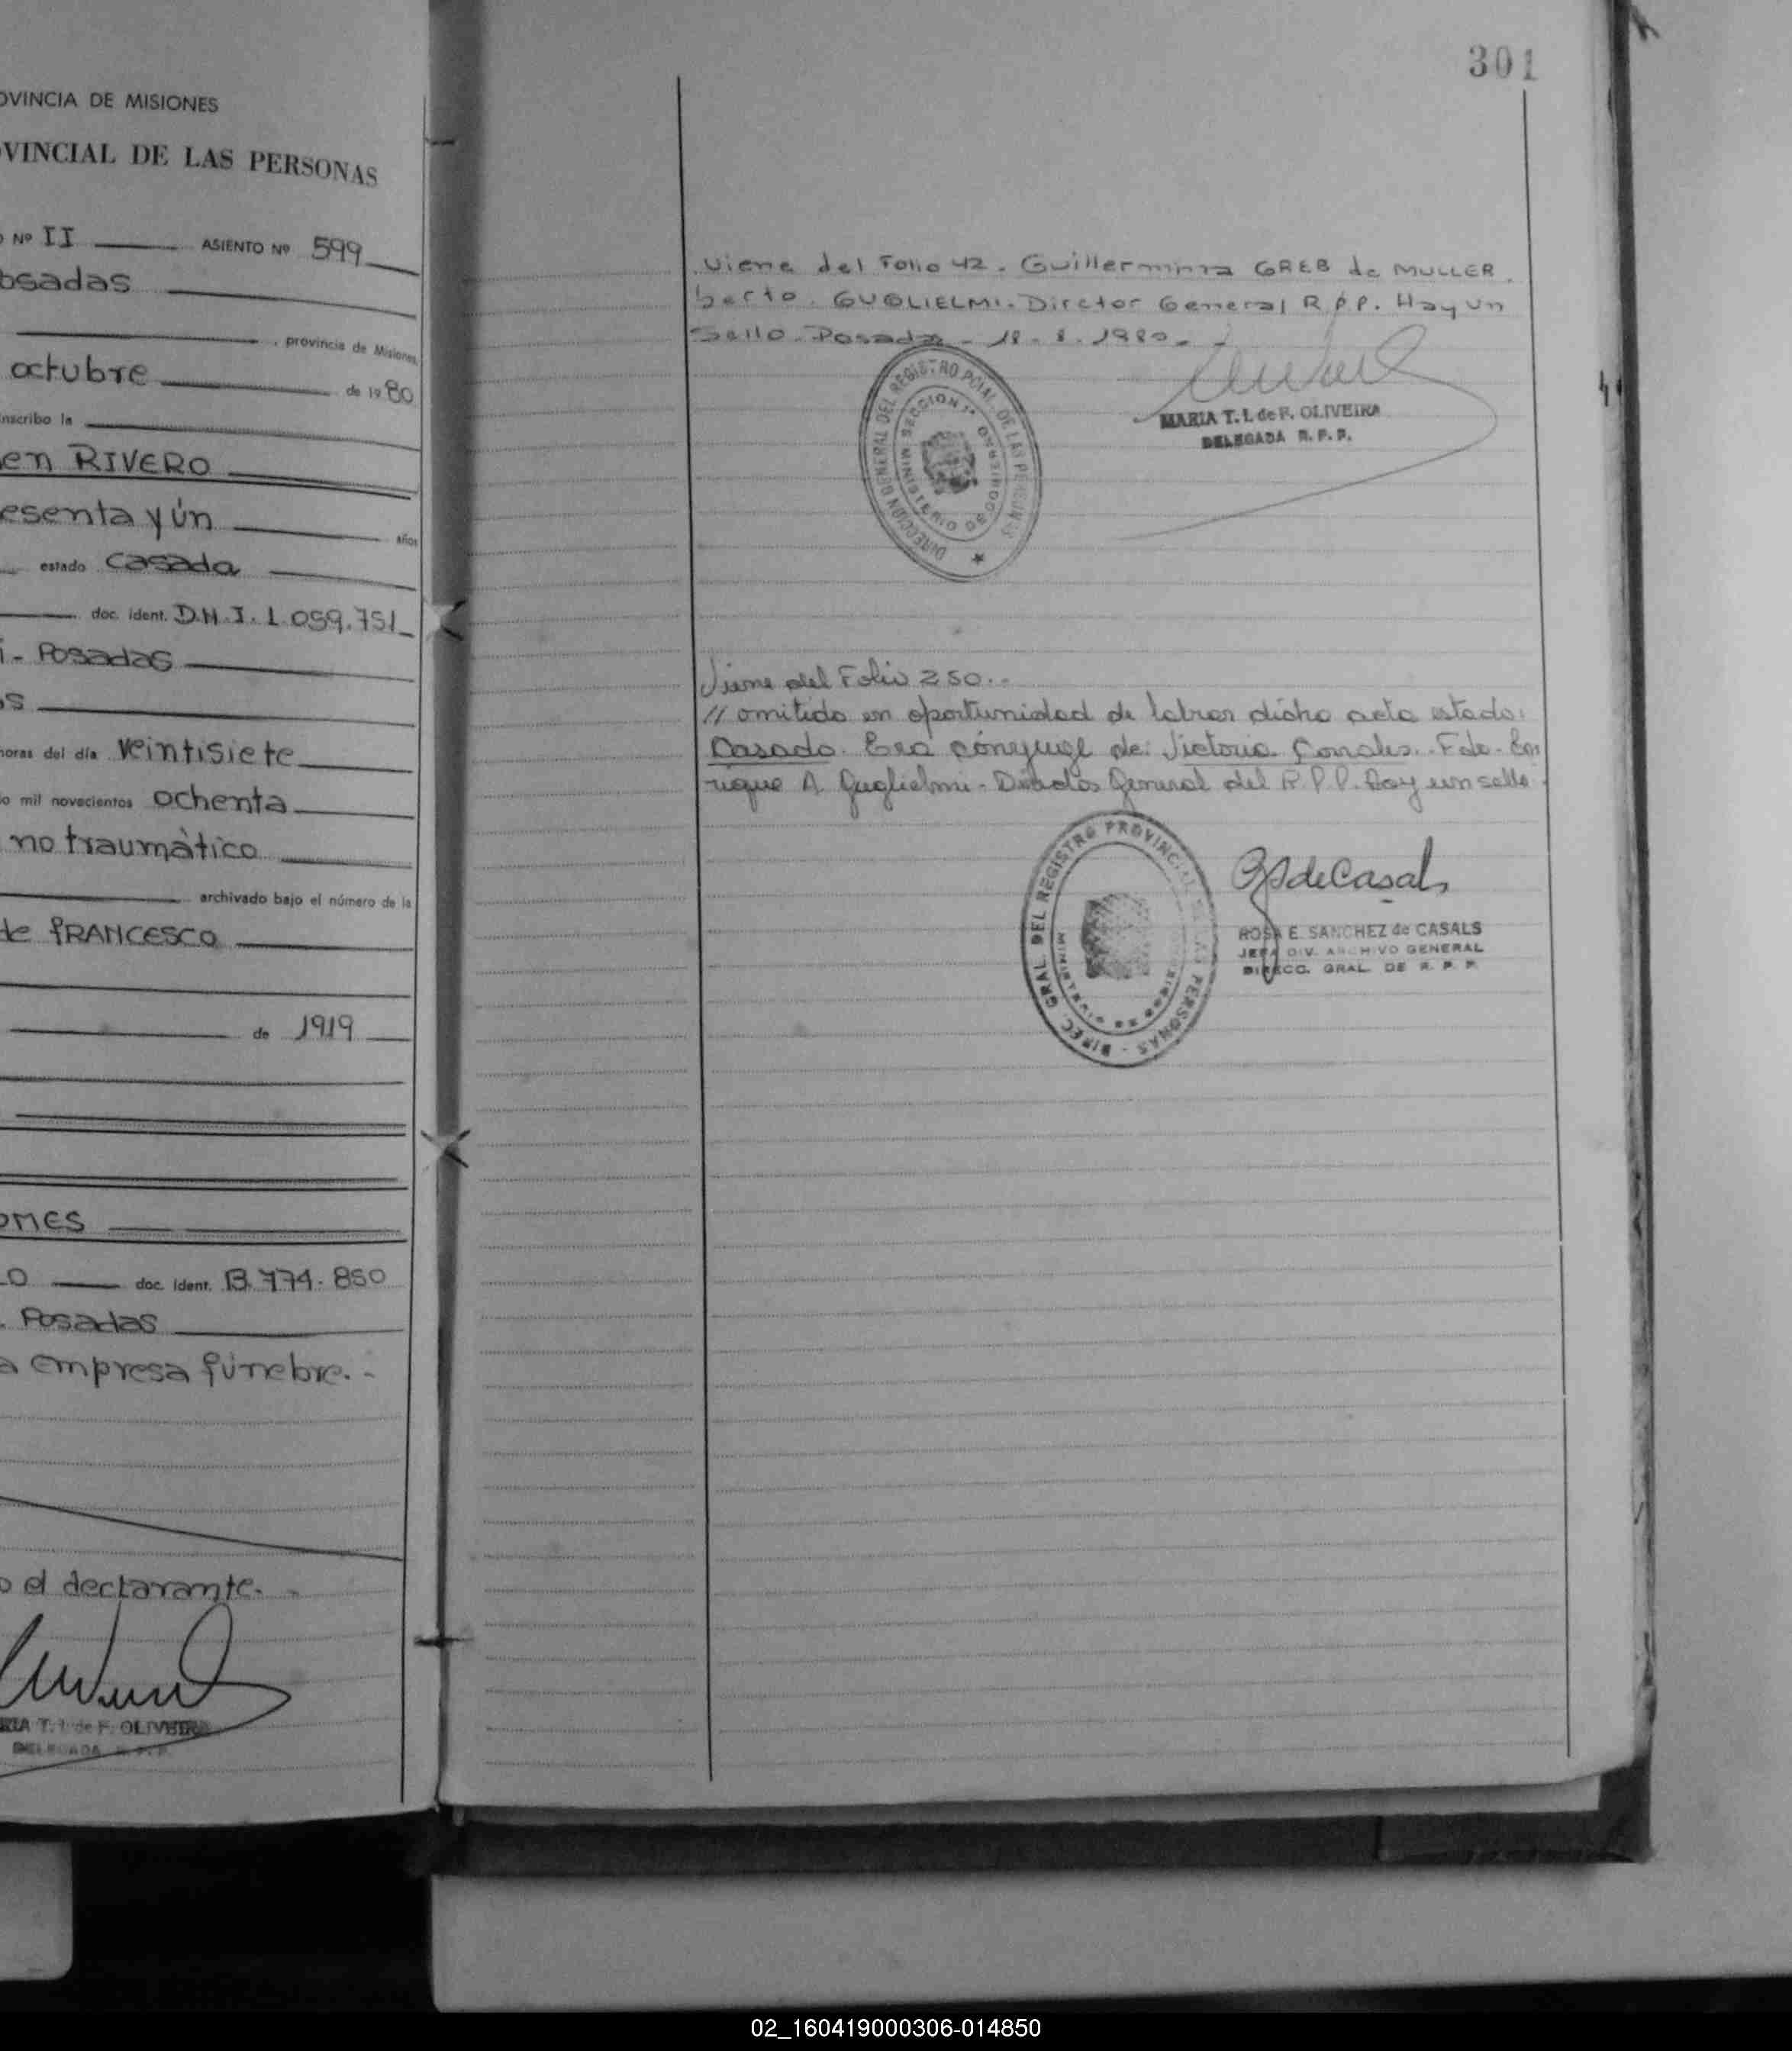 OVINCIA DE MISIONES
OVINCIAL DE LAS PERSONAS
Nº II ASIENTO Nº 599
osadas
, provincia de Misiones,
octubre de 1980
inscribo la
en RIVERO
esenta y ún años
estado casada
doc. ident. D.N.I. 1.059.751
i - Posadas
os
horas del día veintisiete
mil novecientos ochenta
no traumàtico
archivado bajo el número de la
de fRANCESCO
de 1919
ones
LO doc. ident. 13.774.850
. Posadas
a empresa fúnebre. -
o el declarante. -
RIA T. I. de F. OLIVEIRA
DELEGADA R. P. P.
301
viene del Folio 42. Guillermina GREB de MULLER.
berto. GUGLIELMI. Dirctor General R.P.P. Hay un
Sello. Posadas - 18 - 8. 1980. -
DIRECCION GENERAL DEL REGISTRO PCIAL. DE LAS PERSONAS
MINISTERIO DE GOBIERNO
SECCION 1ª
MARIA T. I. de F. OLIVEIRA
DELEGADA R. P. P.
Viene del Folio 250..
// omitido en oportunidad de labrar dicho acta estado:
Casado. Era cónyuge de: Victoria Corrales. Fdo. En
rique A. Guglielmi - Director General del R.P.P. Hay un sello.
DIREC. GRAL. DEL REGISTRO PROVINCIAL DE LAS PERSONAS
ROSA E. SANCHEZ de CASALS
JEFA DIV. ARCHIVO GENERAL
DIRECC. GRAL. DE R. P. P.
02_160419000306-014850